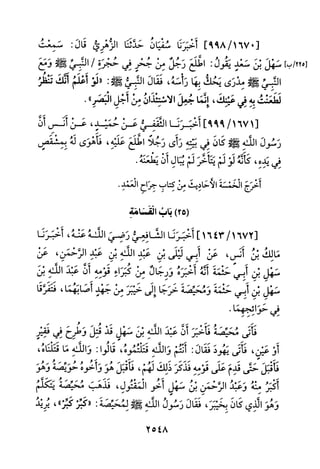 [١٦٧٠/ ٩٩٨] أَخْبَرَنَا سُفْيَانُ حَدَّثَنَا الزُّهْرِيُّ قَالَ: سَمِعْتُ
[٢٢٥/ب] سَهْلَ بْنَ سَعْدٍ يَقُولُ: اطَّلَعَ رَجُلٌ مِنْ جُحْرٍ فِي حُجْرَةِ / النَّبِيِّ ﷺ وَمَعَ
النَّبِيِّ ﷺ مِدْرَى يَحُكُّ بِهَا رَأْسَهُ، فَقَالَ النَّبِيُّ ﷺ: «لَوْ أَعْلَمُ أَنَّكَ تَنْظُرُ
لَطَعَنْتُ بِهِ فِي عَيْنِكَ، إِنَّمَا جُعِلَ الاسْتِئْذَانُ مِنْ أَجْلِ الْبَصَرِ».
[١٦٧١/ ٩٩٩] أَخْبَرَنَا الثَّقَفِيُّ عَنْ حُمَيْدٍ، عَنْ أَنَسٍ أَنَّ
رَسُولَ اللَّهِ ﷺ كَانَ فِي بَيْتِهِ رَأَى رَجُلاً اطَّلَعَ عَلَيْهِ، فَأَهْوَى لَهُ بِمِشْقَصٍ
فِي يَدِهِ، كَأَنَّهُ لَوْ لَمْ يَتَأَخَّرْ لَمْ يُبَالِ أَنْ يَطْعَنَهُ.
أَخْرَجَ الْخَمْسَةَ الأَحَادِيثَ مِنْ كِتَابِ جِرَاحِ الْعَمْدِ.
(٢٥) بَابُ الْقَسَامَةِ
[١٦٧٢/ ١٦٤٣] أَخْبَرَنَا الشَّافِعِيُّ رَضِيَ اللَّهُ عَنْهُ، أَخْبَرَنَا
مَالِكُ بْنُ أَنَسٍ، عَنْ أَبِي لَيْلَى بْنِ عَبْدِ اللَّهِ بْنِ عَبْدِ الرَّحْمَنِ، عَنْ
سَهْلِ بْنِ أَبِي حَثْمَةَ أَنَّهُ أَخْبَرَهُ وَرِجَالٌ مِنْ كُبَرَاءِ قَوْمِهِ أَنَّ عَبْدَ اللَّهِ بْنَ
سَهْلِ بْنِ أَبِي حَثْمَةَ وَمُحَيِّصَةَ خَرَجَا إِلَى خَيْبَرَ مِنْ جَهْدٍ أَصَابَهُمَا، فَتَفَرَّقَا
فِي حَوَائِجِهِمَا.
فَأَتَى مُحَيِّصَةُ فَأَخْبَرَ أَنَّ عَبْدَ اللَّهِ بْنَ سَهْلٍ قَدْ قُتِلَ وَطُرِحَ فِي فَقِيرٍ
أَوْ عَيْنٍ، فَأَتَى يَهُودَ فَقَالَ: أَنْتُمْ وَاللَّهِ قَتَلْتُمُوهُ، قَالُوا: وَاللَّهِ مَا قَتَلْنَاهُ،
فَأَقْبَلَ حَتَّى قَدِمَ عَلَى قَوْمِهِ فَذَكَرَ ذَلِكَ لَهُمْ، فَأَقْبَلَ هُوَ وَأَخُوهُ حُوَيِّصَةُ وَهُوَ
أَكْبَرُ مِنْهُ وَعَبْدُ الرَّحْمَنِ بْنُ سَهْلٍ أَخُو الْمَقْتُولِ، فَذَهَبَ مُحَيِّصَةُ يَتَكَلَّمُ
وَهُوَ الَّذِي كَانَ بِخَيْبَرَ، فَقَالَ رَسُولُ اللَّهِ ﷺ لِمُحَيِّصَةَ: «كَبِّرْ كَبِّرْ»، يُرِيْدُ
٢٥٤٨